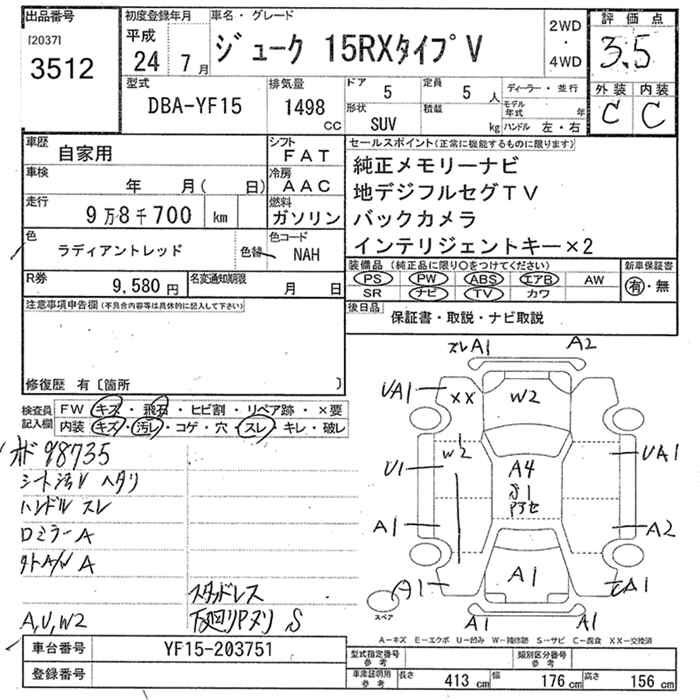 出品番号
[2037]
3512
初度登録年月
平成
24年 7月
車名・グレード
ジューク 15RXタイプV
2WD
・
4WD
評価点
3.5
外装 内装
C C
型式
DBA-YF15
排気量
1498
CC
ドア
5
定員
5人
形状
SUV
積載
kg
ディーラー・並行
モデル年式 年
ハンドル 左・右
車歴
自家用
シフト
FAT
車検
年 月( 日)
冷房
AAC
走行
9万8千700 km
燃料
ガソリン
色
ラディアントレッド
色替
色コード
NAH
R券
9,580円
名変通知期限
月 日
セールスポイント(正常に機能するものに限ります)
純正メモリーナビ
地デジフルセグTV
バックカメラ
インテリジェントキー×2
装備品(純正品に限り○をつけてください)
PS PW ABS エアB AW
SR ナビ TV カワ
新車保証書
有・無
後日品
保証書・取説・ナビ取説
注意事項申告欄(不具合内容等は具体的に記入して下さい)
修復歴 有〔箇所 〕
検査員記入欄
FW キズ・飛石・ヒビ割・リペア跡・×要
内装 キズ・汚レ・コゲ・穴・スレ・キレ・破レ
98735
ハンドル スレ
ロミラーA
A,U,W2
スタッドレス
下廻りPヌリ S
スレA1
A2
UA1
XX
W2
U1
W2
A4
S1
UA1
A1
A2
A1
A1
A1
A1
スペア
A-キズ E-エクボ U-凹み W-補修跡 S-サビ C-腐食 XX-交換済
車台番号
YF15-203751
登録番号
型式指定番号
参考
類別区分番号
参考
車庫証明用
参考
長さ 413 cm
幅 176 cm
高さ 156 cm